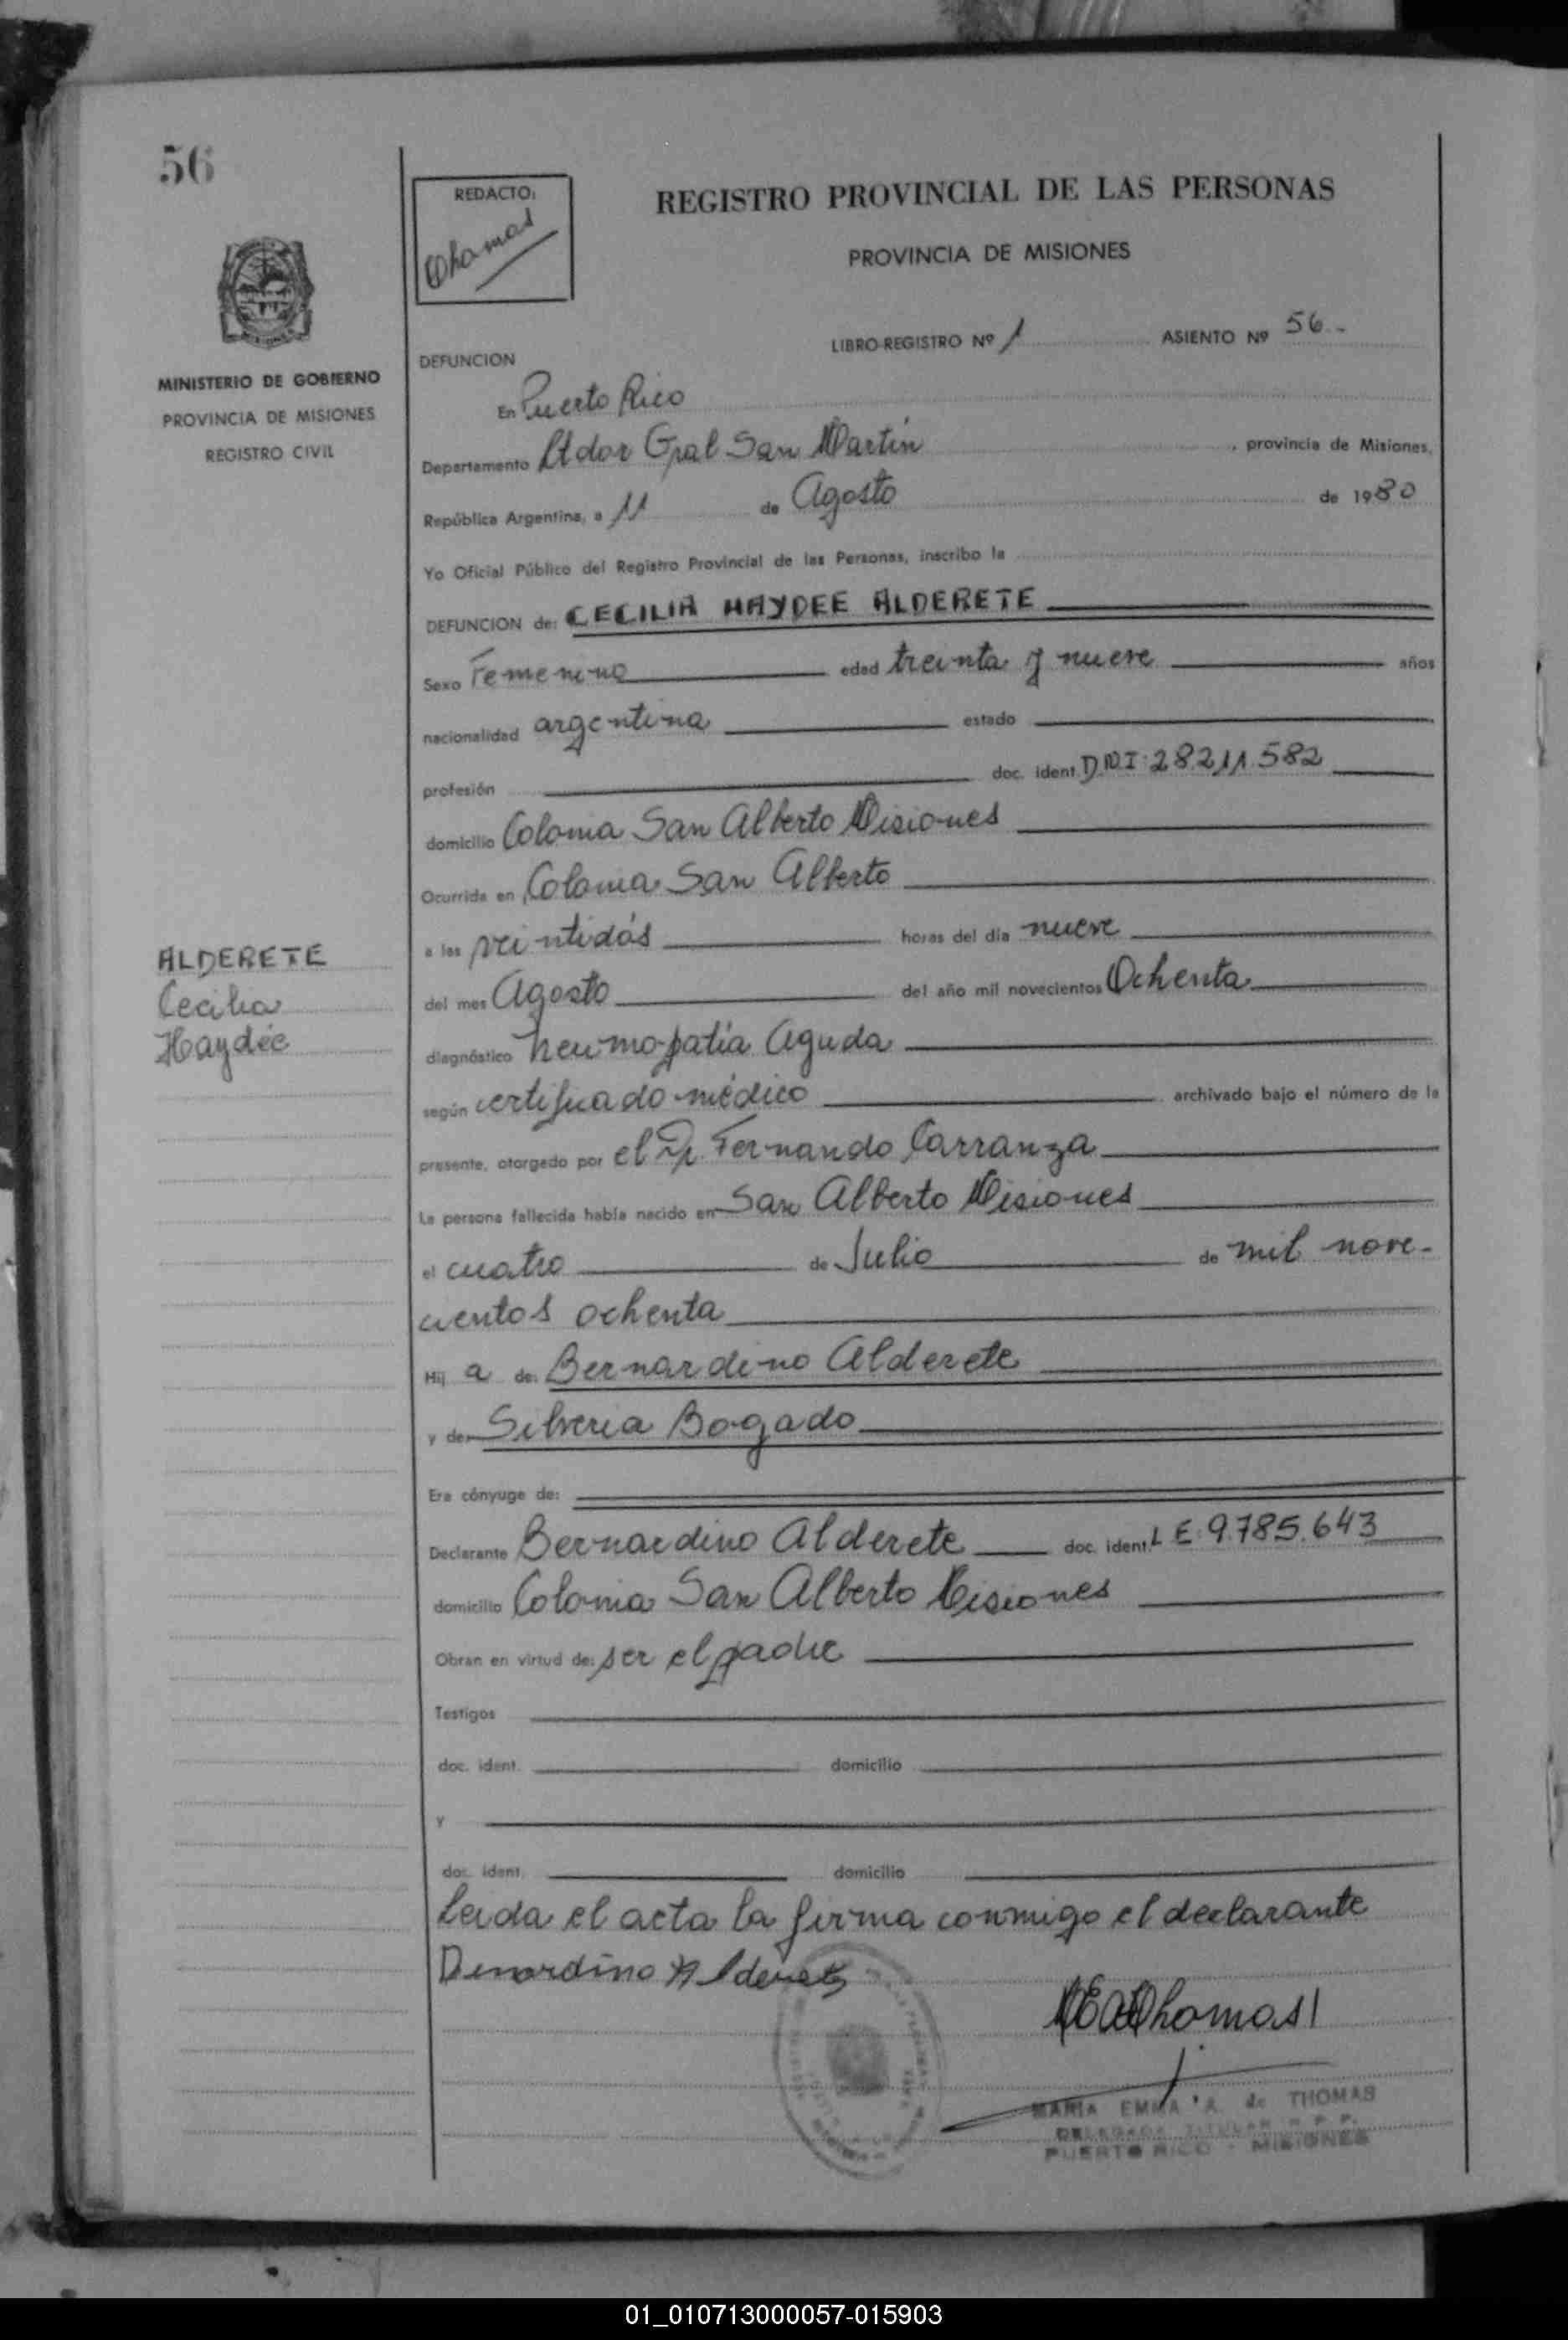 56
REDACTO:
Thomas
REGISTRO PROVINCIAL DE LAS PERSONAS
PROVINCIA DE MISIONES
MINISTERIO DE GOBIERNO
PROVINCIA DE MISIONES
REGISTRO CIVIL
LIBRO-REGISTRO Nº 1 ASIENTO Nº 56.-
DEFUNCION
En Puerto Rico
Departamento Ltdor Gral San Martín, provincia de Misiones,
República Argentina, a 11 de Agosto de 1980
Yo Oficial Público del Registro Provincial de las Personas, inscribo la
DEFUNCION de: CECILIA HAYDEE ALDERETE
Sexo Femenino edad treinta y nueve años
nacionalidad argentina estado
profesión doc. ident. D.N.I: 28.211.582
domicilio Colonia San Alberto Misiones
Ocurrida en Colonia San Alberto
ALDERETE
Cecilia
Haydée
a las veintidós horas del día nueve
del mes Agosto del año mil novecientos Ochenta
diagnóstico neumopatía Aguda
según certificado médico archivado bajo el número de la
presente, otorgado por el Dr. Fernando Carranza
La persona fallecida había nacido en San Alberto Misiones
el cuatro de Julio de mil nove-
cientos ochenta
Hij a de: Bernardino Alderete
y de: Silveria Bogado
Era cónyuge de:
Declarante Bernardino Alderete doc. ident. L E: 9.785.643
domicilio Colonia San Alberto Misiones
Obran en virtud de: ser el padre
Testigos
doc. ident. domicilio
y
doc. ident. domicilio
Leida el acta la firma conmigo el declarante
Bernardino Alderete
MEAThomas
MARIA EMMA A. de THOMAS
DELEGADA TITULAR R. P. P.
PUERTO RICO - MISIONES
01_010713000057-015903